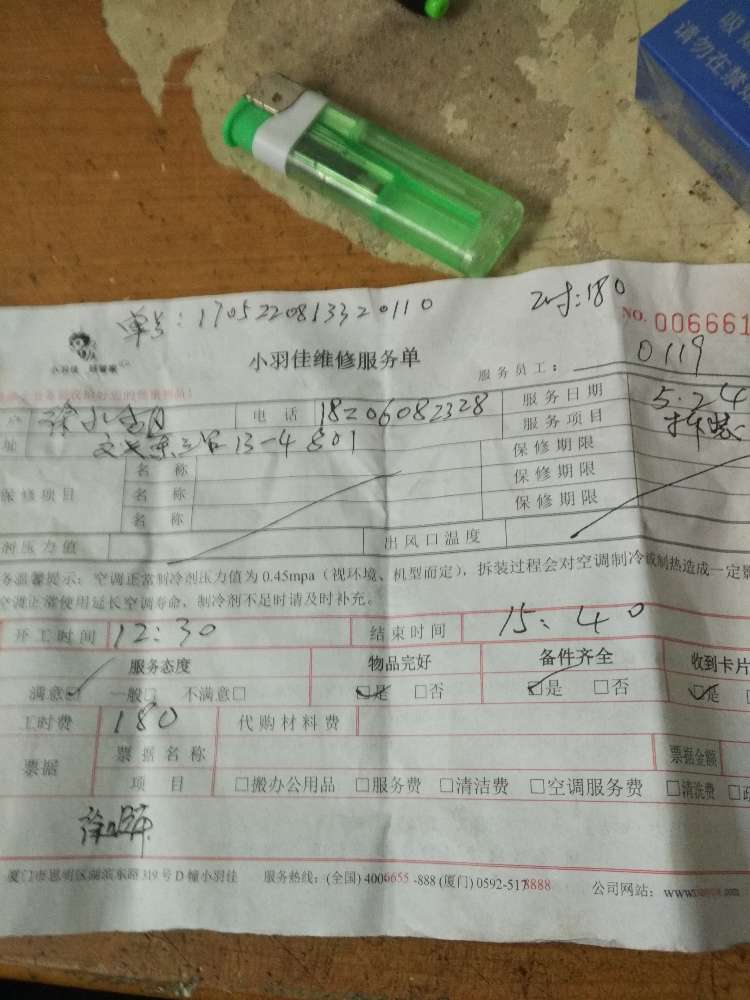 吸
请勿在禁
单号:1705220813320110
2时:180
NO. 006661
小羽佳 小羽佳维修服务单 服务员工: 0119
电话 18206082328 服务日期 5.24
址 13-4 801 服务项目 拆装
保修项目 名称 保修期限
名称 保修期限
名称 保修期限
剂压力值 出风口温度
务温馨提示:空调正常制冷剂压力值为0.45mpa(视环境、机型而定),拆装过程会对空调制冷或制热造成一定影
空调正常使用延长空调寿命,制冷剂不足时请及时补充。
开工时间 12:30 结束时间 15:40
服务态度 物品完好 备件齐全 收到卡片
满意☑ 一般□ 不满意□ ☑是 □否 ☑是 □否 ☑是
工时费 180 代购材料费
票据 票据名称 票据金额
项目 □搬办公用品 □服务费 □清洁费 □空调服务费 □清洗费
厦门市思明区湖滨东路319号D幢小羽佳 服务热线:(全国)4006655-888(厦门)0592-5178888 公司网站:www.